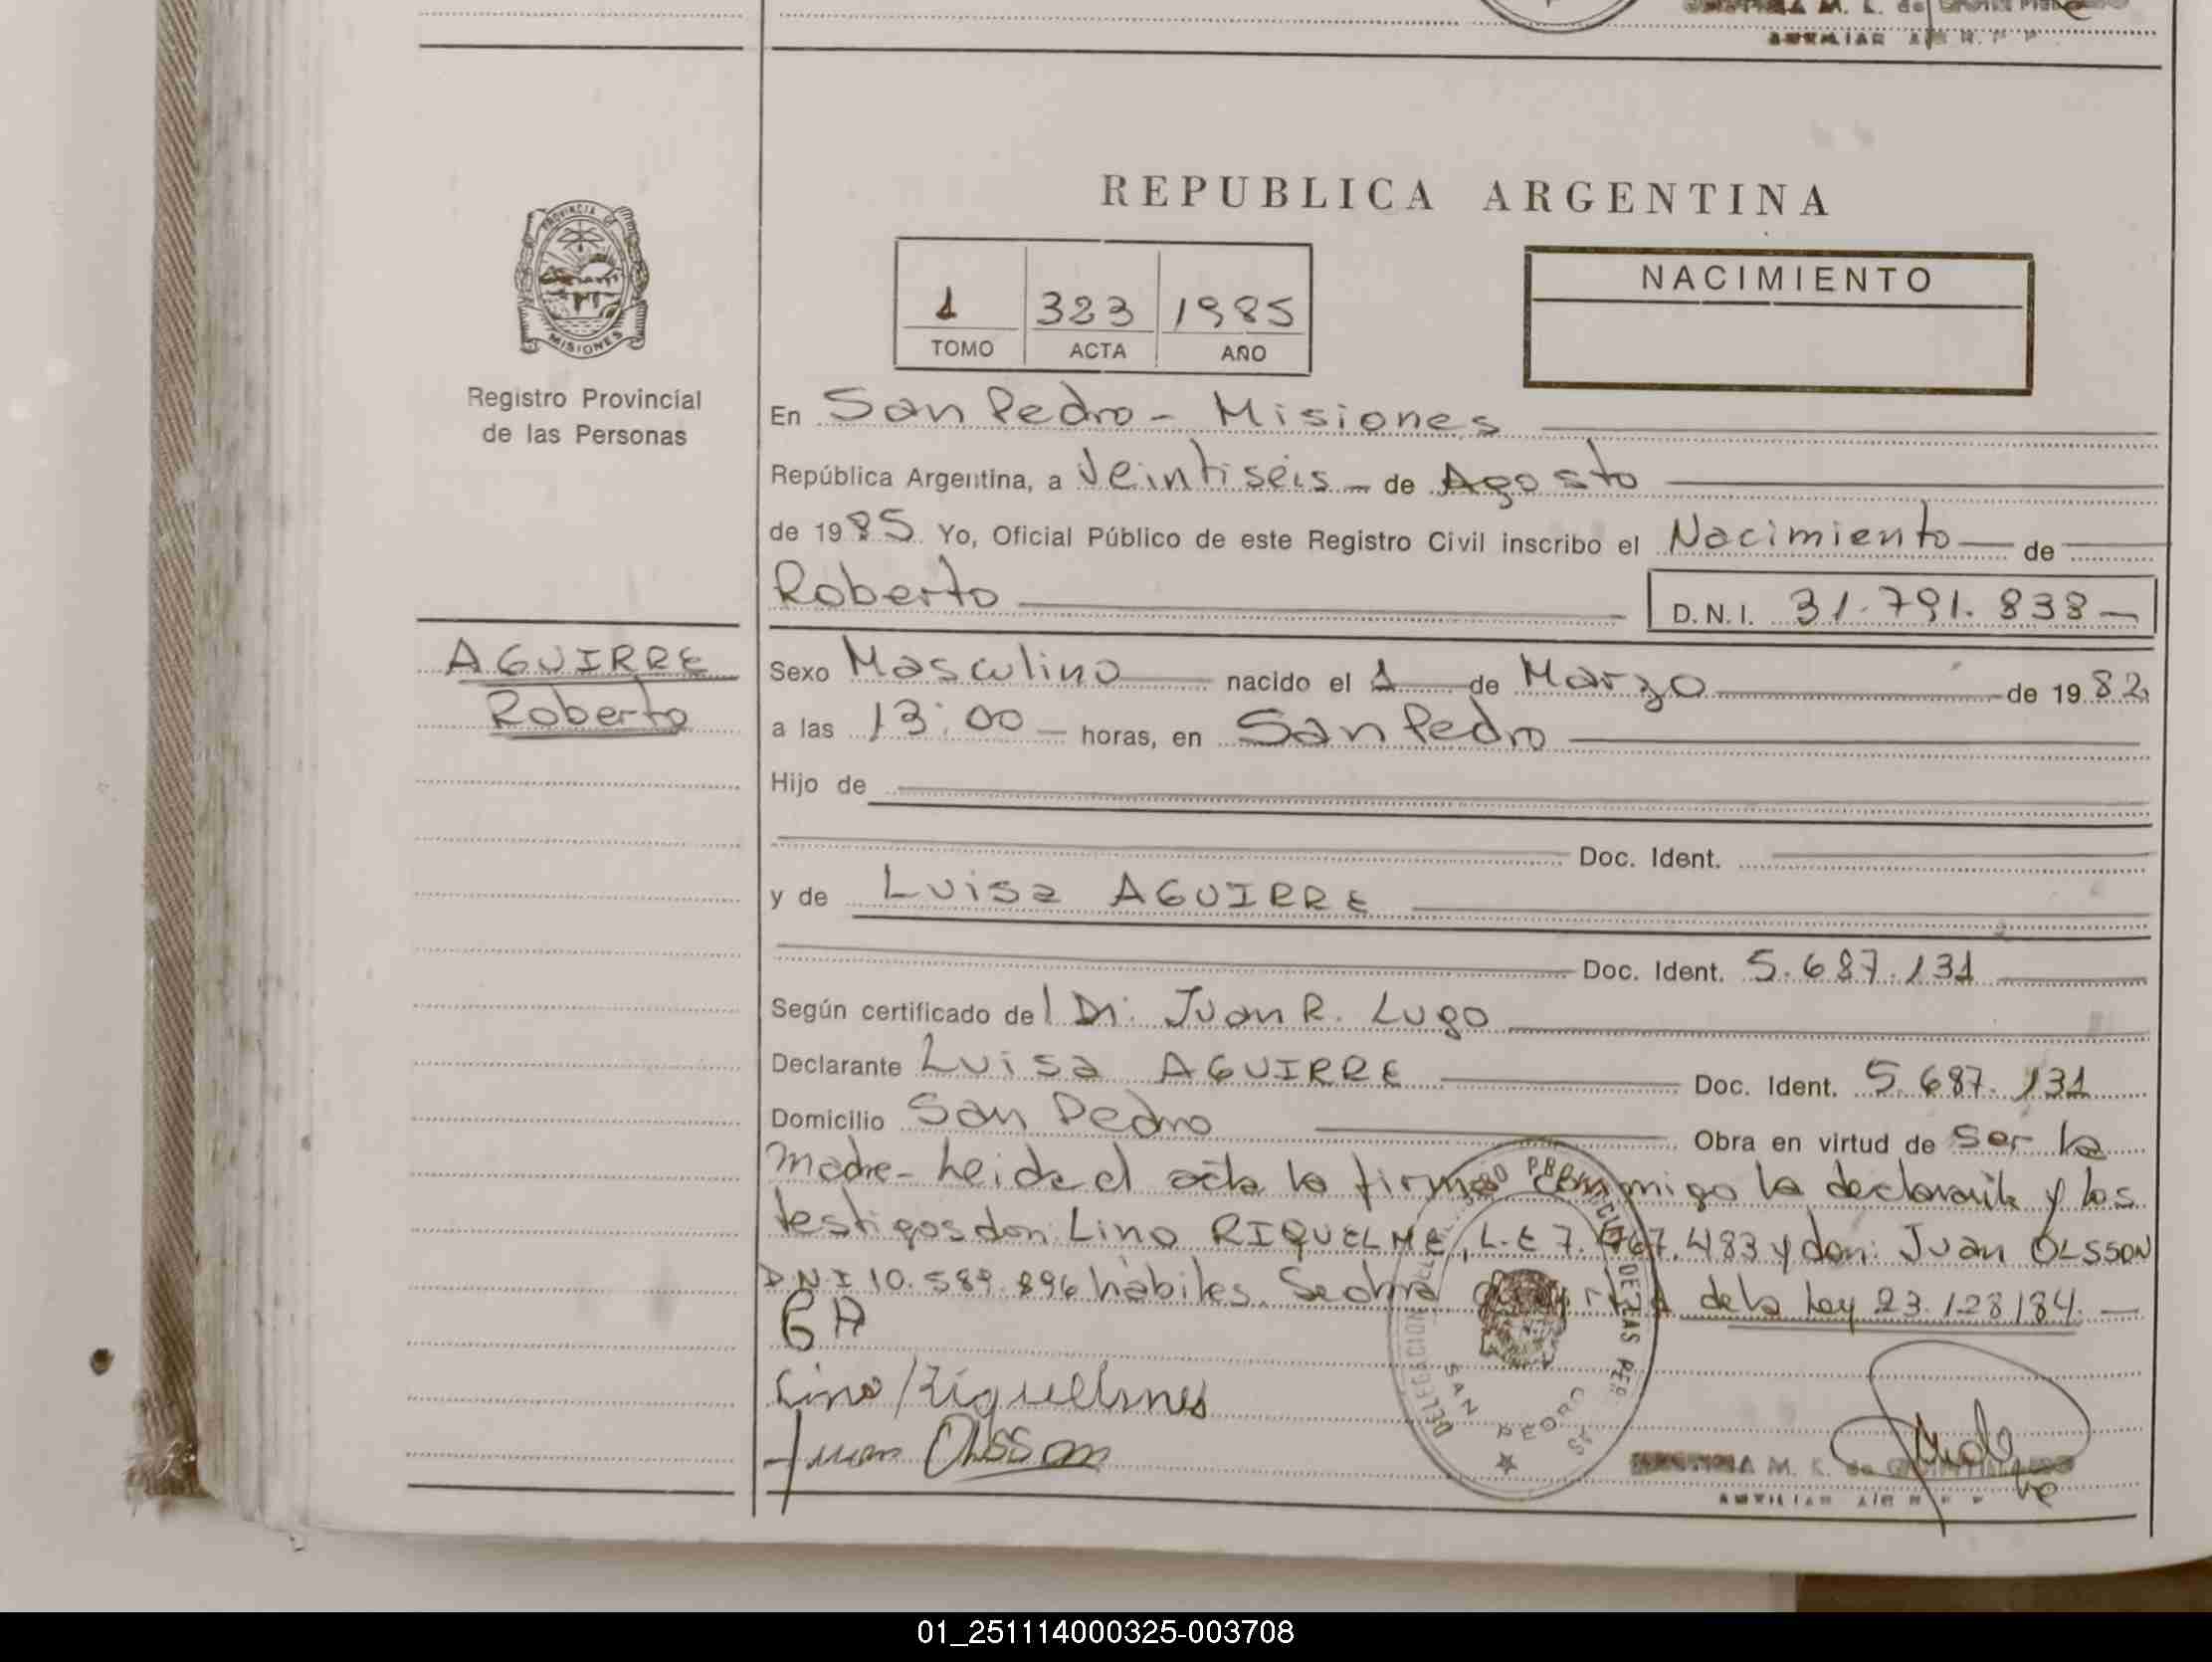 AUXILIAR
REPUBLICA ARGENTINA
PROVINCIA DE
MISIONES
Registro Provincial
de las Personas
1 323 1985
TOMO ACTA AÑO
NACIMIENTO
En San Pedro - Misiones
República Argentina, a Veintiséis - de Agosto
de 1985. Yo, Oficial Público de este Registro Civil inscribo el Nacimiento de
Roberto D.N.I. 31.791.838-
AGUIRRE
Roberto
Sexo Masculino nacido el 1 de Marzo de 1982
a las 13:00 - horas, en San Pedro
Hijo de
Doc. Ident.
y de Luisa AGUIRRE
Doc. Ident. 5.687.131
Según certificado del Dr. Juan R. Lugo
Declarante Luisa AGUIRRE Doc. Ident. 5.687.131
Domicilio San Pedro Obra en virtud de ser la
madre- leida el acta la firman conmigo la declarante y los
testigos don: Lino RIQUELME, L.E 7. 483 y don: Juan OLSSON
DNI 10.589.896 hábiles. Se de la Ley 23.128/84.-
Juan Olsson
DELEGACION PROVINCIAL DE LAS PER.
SAN PEDRO
M. K. de
AUXILIAR
01_251114000325-003708